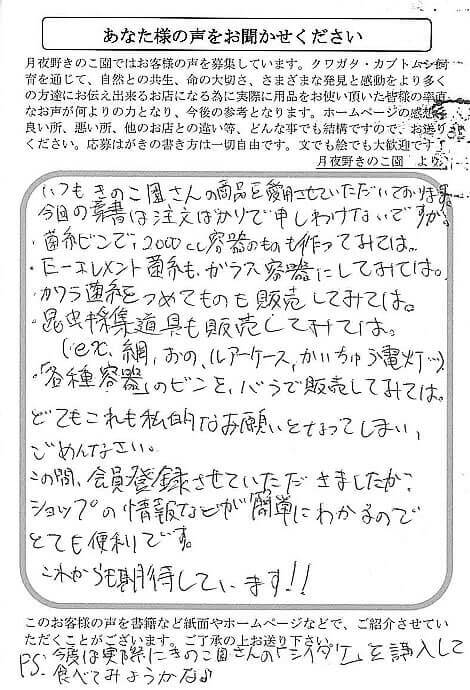 あなた様の声をお聞かせください
月夜野きのこ園ではお客様の声を募集しています。クワガタ・カブトムシ飼
育を通じて、自然との共生、命の大切さ、さまざまな発見と感動をより多く
の方達にお伝え出来るお店になる為に実際に用品をお使い頂いた皆様の率直
なお声が何よりの力となり、今後の参考となります。ホームページの感想、
良い所、悪い所、他のお店との違い等、どんな事でも結構ですので、お送り
ください。応募はがきの書き方は一切自由です。文でも絵でも大歓迎です！
月夜野きのこ園 より
いつもきのこ園さんの商品を愛用させていただいております。
今回の葉書は注文ばかりで申しわけないですが。
・菌糸ビンで、2000cc容器のものも作ってみては。
・E-エレメント菌糸も、ガラス容器にしてみては。
・カワラ菌糸をつめてものも販売してみては。
・昆虫採集道具も販売してみては。
(ex. 網, おの, ルアーケース, かいちゅう電灯…)
・「各種容器」のビンを、バラで販売してみては。
どてもこれも私的なお願いとなってしまい、
ごめんなさい。
この間、会員登録させていただきましたが、
ショップの情報などが簡単にわかるので
とても便利です。
これからも期待しています!!
このお客様の声を書籍など紙面やホームページなどで、ご紹介させてい
ただくことがございます。ご了承の上お送り下さい。
PS. 今度は実際にきのこ園さんの「シイタケ」を購入して
食べてみようかな♪